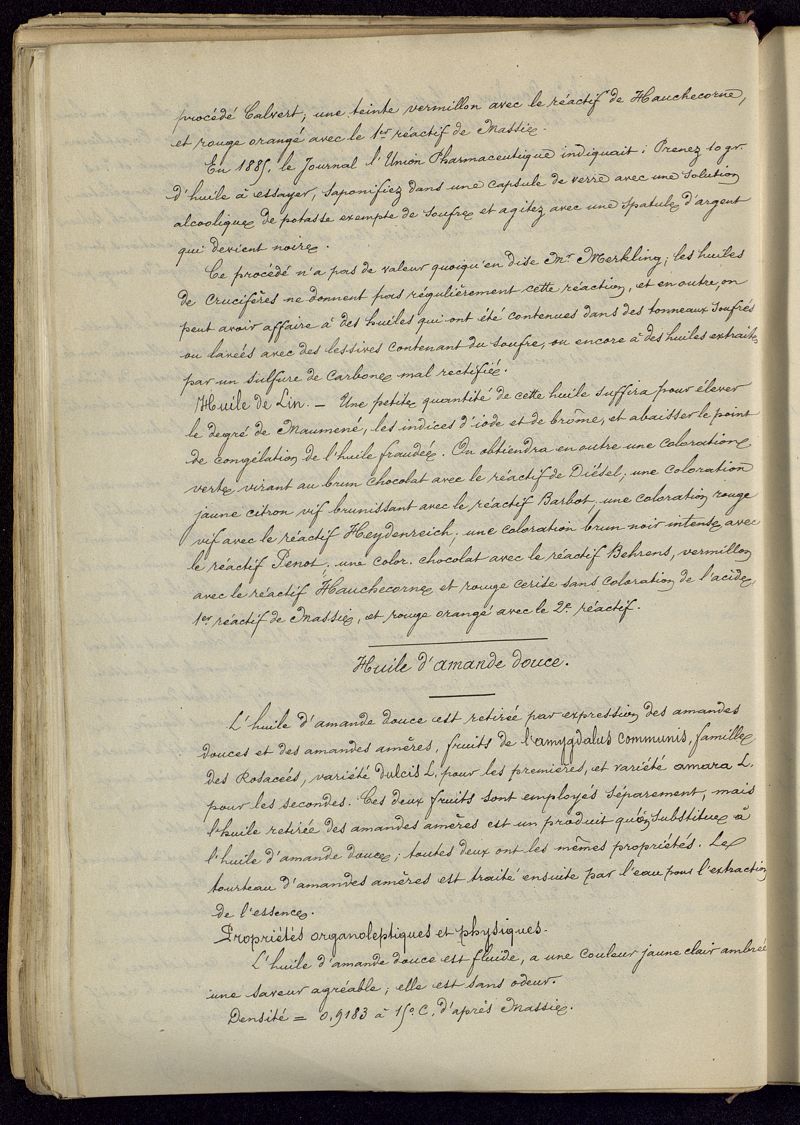 procédé Calvert; une teinte vermillon avec le réactif de Hauchecorne,
et rouge orangé avec le 1er réactif de Massie.
En 1885, le Journal l'Union Pharmaceutique indiquait: Prenez 10 gr
d'huile à essayer, saponifiez dans une capsule de verre avec une solution
alcoolique de potasse exempte de soufre et agitez avec une spatule d'argent
qui devient noire.
Ce procédé n'a pas de valeur quoiqu'en dise Mr Merkling; les huiles
de Crucifères ne donnent pas régulièrement cette réaction, et en outre, on
peut avoir affaire à des huiles qui ont été contenues dans des tonneaux soufrés
ou lavées avec des lessives contenant du soufre, ou encore à des huiles extraites
par un sulfure de Carbone mal rectifié.
Huile de Lin. — Une petite quantité de cette huile suffira pour élever
le degré de Maumené, les indices d'iode et de brôme, et abaisser le point
de congélation de l'huile fraudée. On obtiendra en outre une coloration
verte virant au brun chocolat avec le réactif de Diésel; une coloration
jaune citron vif brunissant avec le réactif Barbot; une coloration rouge
vif avec le réactif Heydenreich; une coloration brun noir intense avec
le réactif Penot; une color. chocolat avec le réactif Behrens, vermillon
avec le réactif Hauchecorne et rouge cerise sans coloration de l'acide,
1er réactif de Massie, et rouge orangé avec le 2e réactif.
Huile d'amande douce.
L'huile d'amande douce est retirée par expression des amandes
douces et des amandes amères, fruits de l'amygdalus communis, famille
des Rosacées, variété dulcis L. pour les premières, et variété amara L.
pour les secondes. Ces deux fruits sont employés séparement, mais
l'huile retirée des amandes amères est un produit qu'on substitue à
l'huile d'amande douce; toutes deux ont les mêmes propriétés. Le
tourteau d'amandes amères est traité ensuite par l'eau pour l'extraction
de l'essence.
Propriétés organoleptiques et physiques.
L'huile d'amande douce est fluide, a une couleur jaune clair ambrée
une saveur agréable; elle est sans odeur.
Densité = 0,9183 à 15° C. d'après Massie.